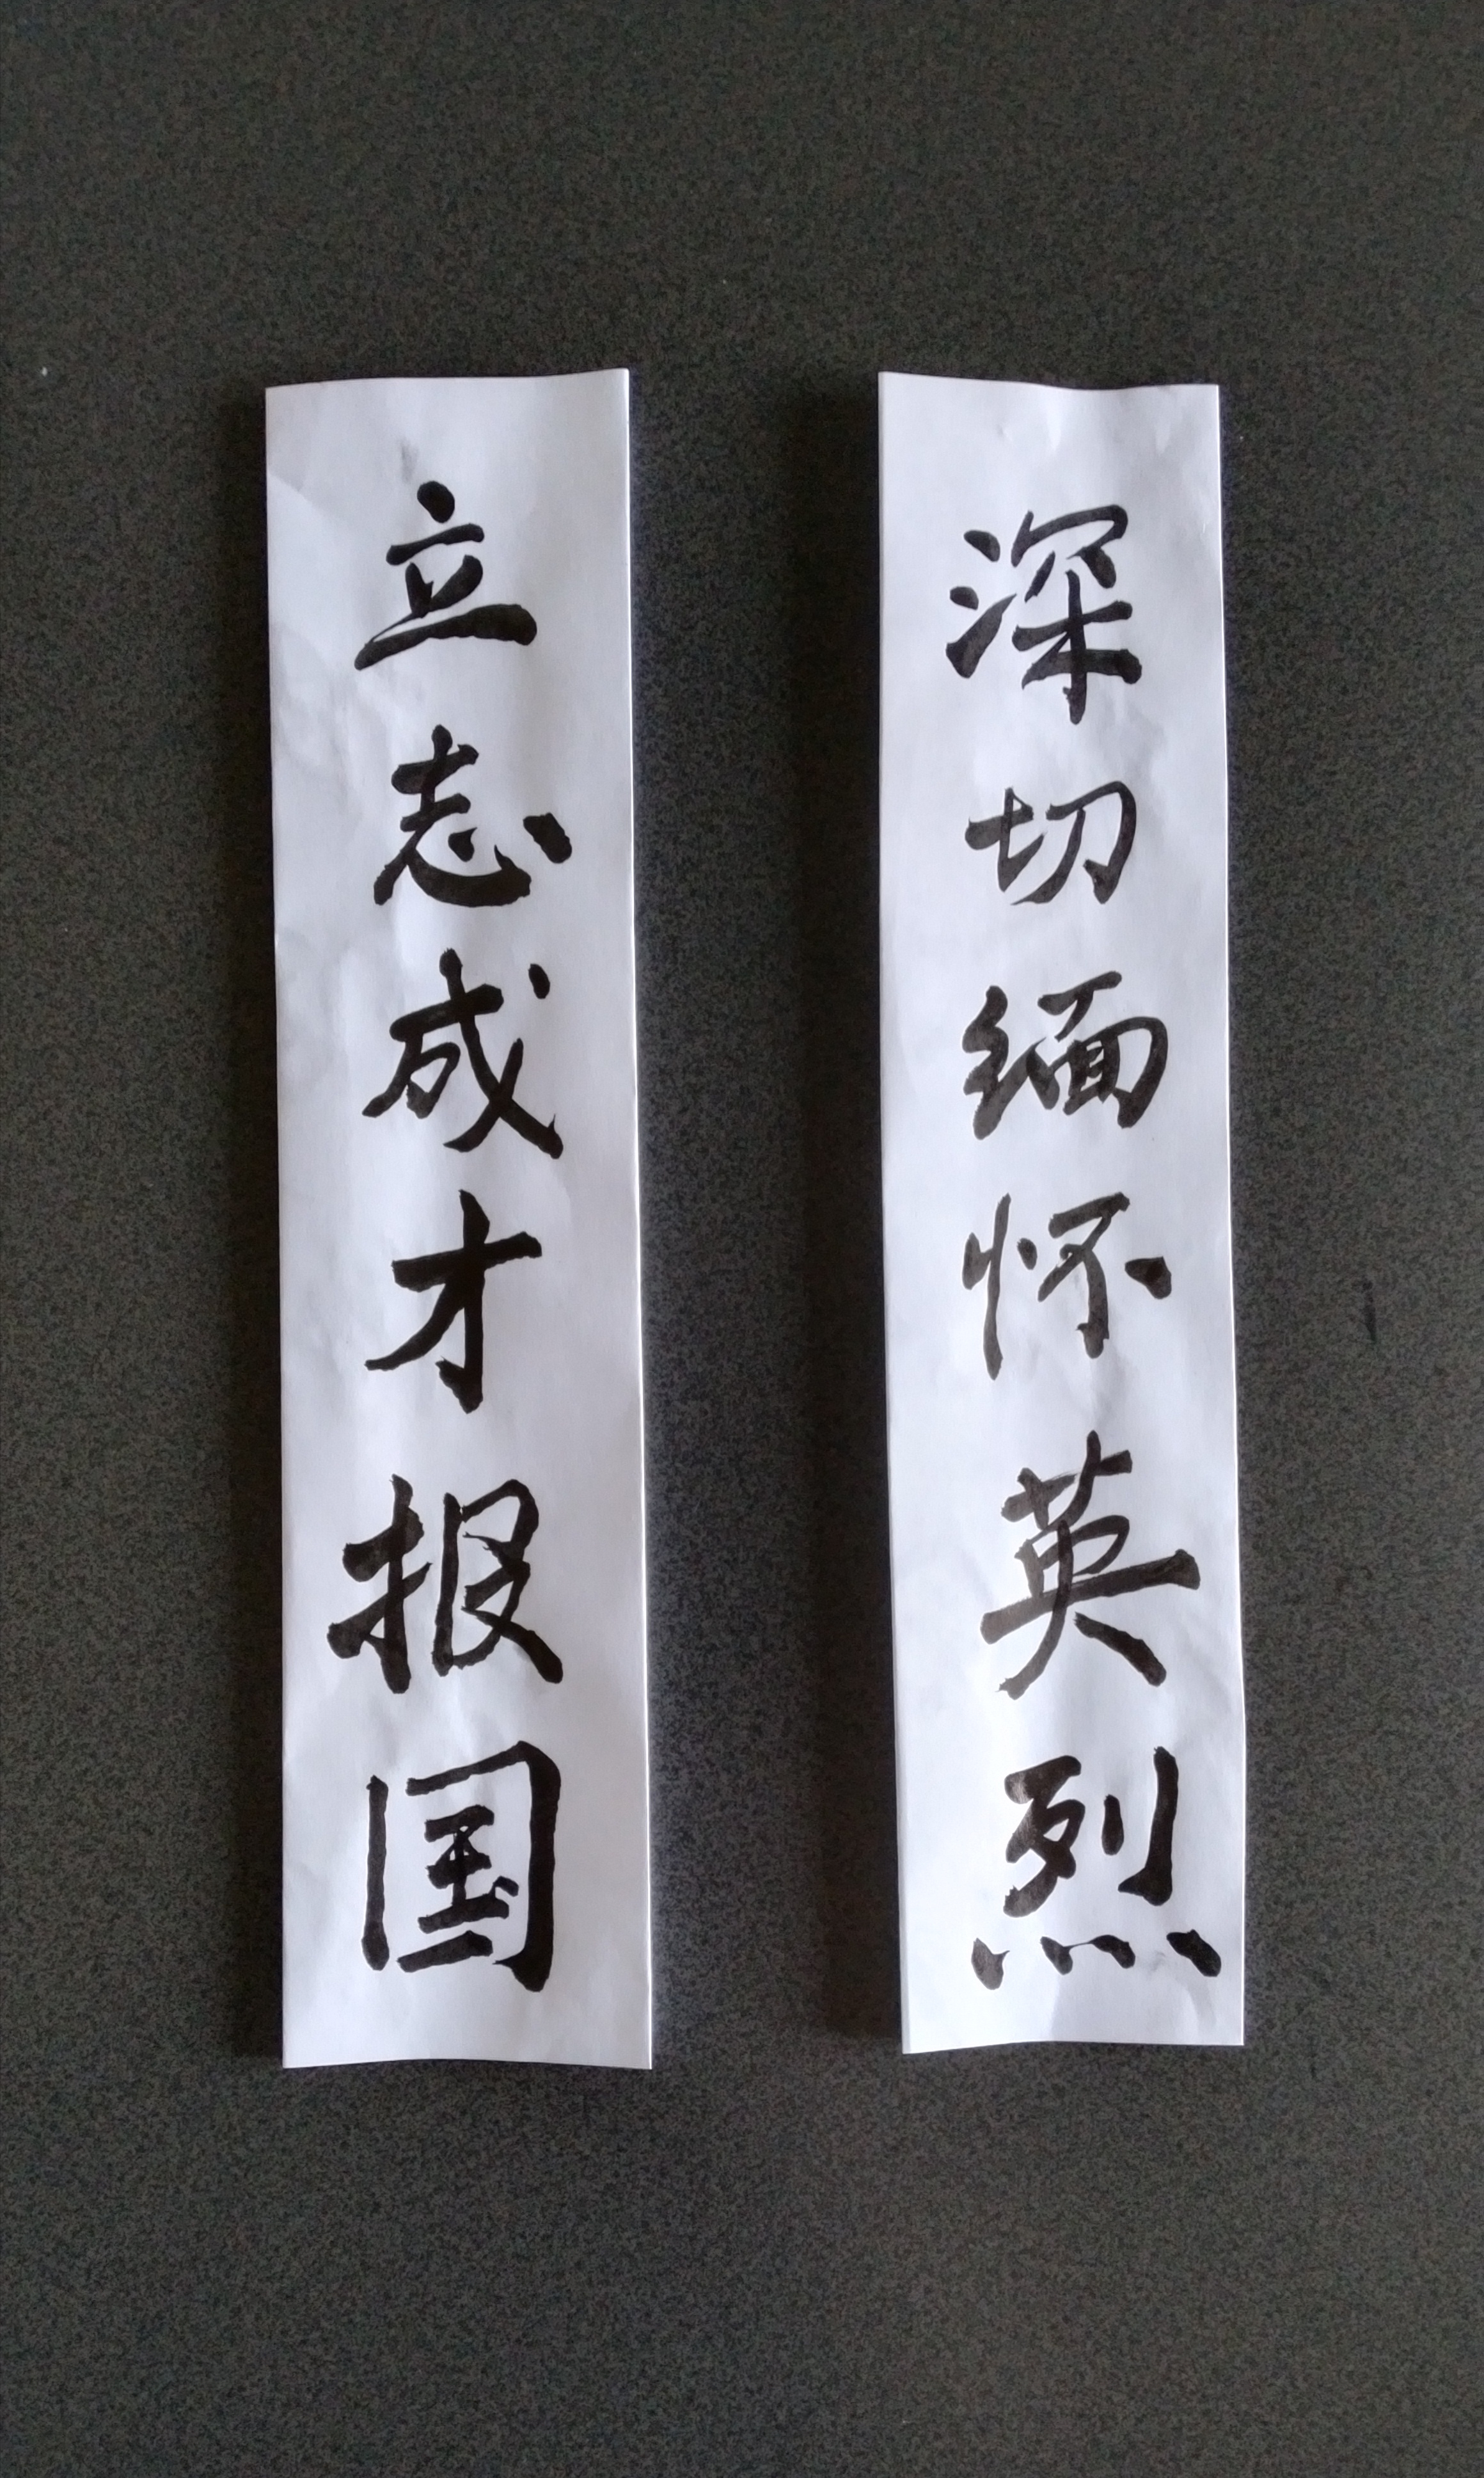 深切缅怀英烈
立志成才报国